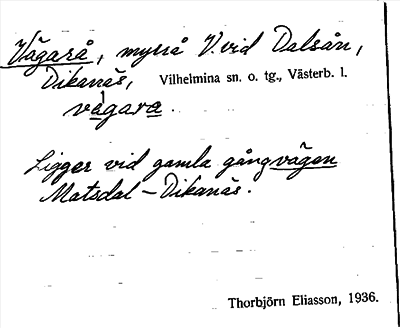 Vägarå, myrå V. vid Dalsån,
Dikanäs, Vilhelmina sn. o. tg., Västerb. l.
vägara.
Ligger vid gamla gångvägen
Matsdal – Dikanäs.
Thorbjörn Eliasson, 1936.